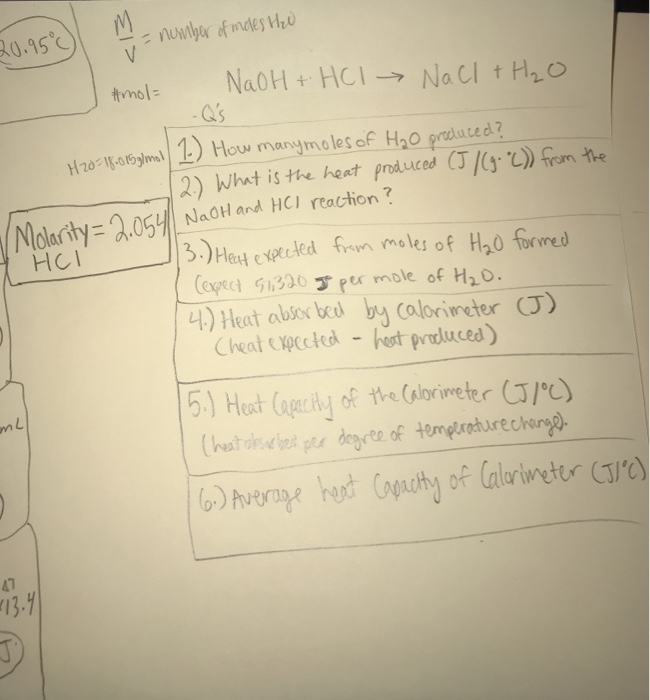 20.95°C
M/V = number of moles H2O
#mol=
NaOH + HCl → NaCl + H2O
- Q's
H20=18.015g/mol
1.) How many moles of H2O produced?
2.) What is the heat produced (J/(g·°C)) from the
NaOH and HCl reaction?
Molarity = 2.054
HCl
3.) Heat expected from moles of H2O formed
(expect 51,320 J per mole of H2O.
4.) Heat absorbed by calorimeter (J)
(heat expected - heat produced)
5.) Heat Capacity of the Calorimeter (J/°C)
(heat absorbed per degree of temperature change).
mL
6.) Average heat Capacity of Calorimeter (J/°C)
ΔT
13.4
J